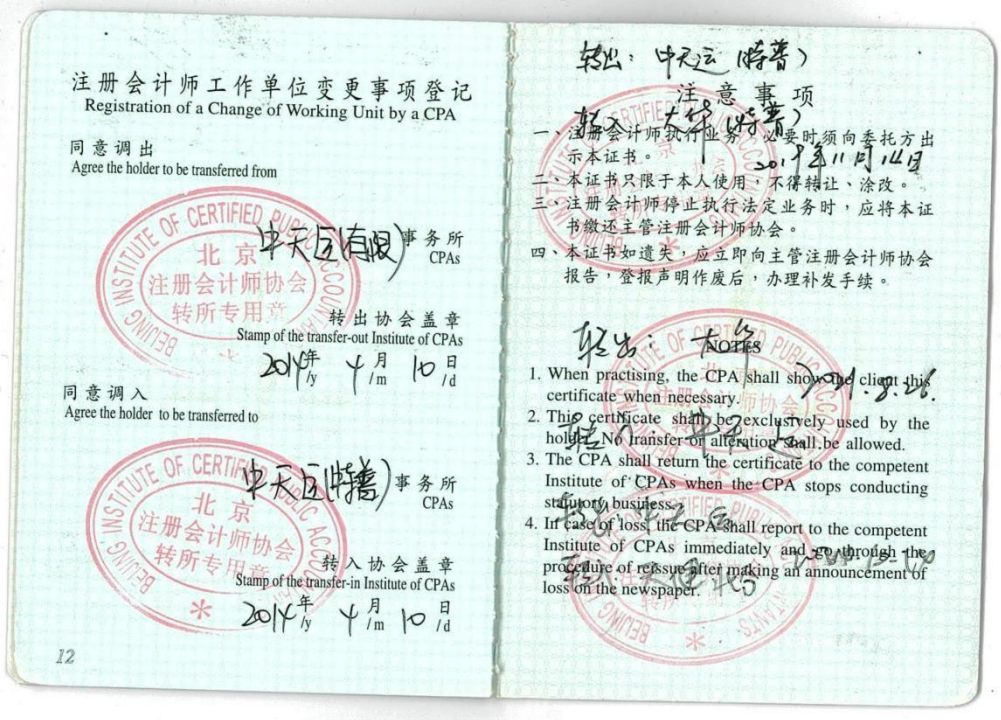 注册会计师工作单位变更事项登记
Registration of a Change of Working Unit by a CPA
同意调出
Agree the holder to be transferred from
BEIJING INSTITUTE OF CERTIFIED PUBLIC ACCOUNTANTS
北京
注册会计师协会
转所专用章
中天运(有限) 事务所
CPAs
转出协会盖章
Stamp of the transfer-out Institute of CPAs
2014年 4月 10日
/y /m /d
同意调入
Agree the holder to be transferred to
BEIJING INSTITUTE OF CERTIFIED PUBLIC ACCOUNTANTS
北京
注册会计师协会
转所专用章
中天运(特普) 事务所
CPAs
转入协会盖章
Stamp of the transfer-in Institute of CPAs
2014年 4月 10日
/y /m /d
12
转出: 中天运(特普)
注意事项
转入 大华(特普)
一、注册会计师执行业务,必要时须向委托方出
示本证书。
2019年11月14日
二、本证书只限于本人使用,不得转让、涂改。
三、注册会计师停止执行法定业务时,应将本证
书缴还主管注册会计师协会。
四、本证书如遗失,应立即向主管注册会计师协会
报告,登报声明作废后,办理补发手续。
转出: 大华
NOTES
1. When practising, the CPA shall show the client this
certificate when necessary.
2. This certificate shall be exclusively used by the
holder. No transfer or alteration shall be allowed.
3. The CPA shall return the certificate to the competent
Institute of CPAs when the CPA stops conducting
statutory business.
4. In case of loss, the CPA shall report to the competent
Institute of CPAs immediately and go through the
procedure of reissue after making an announcement of
loss on the newspaper.